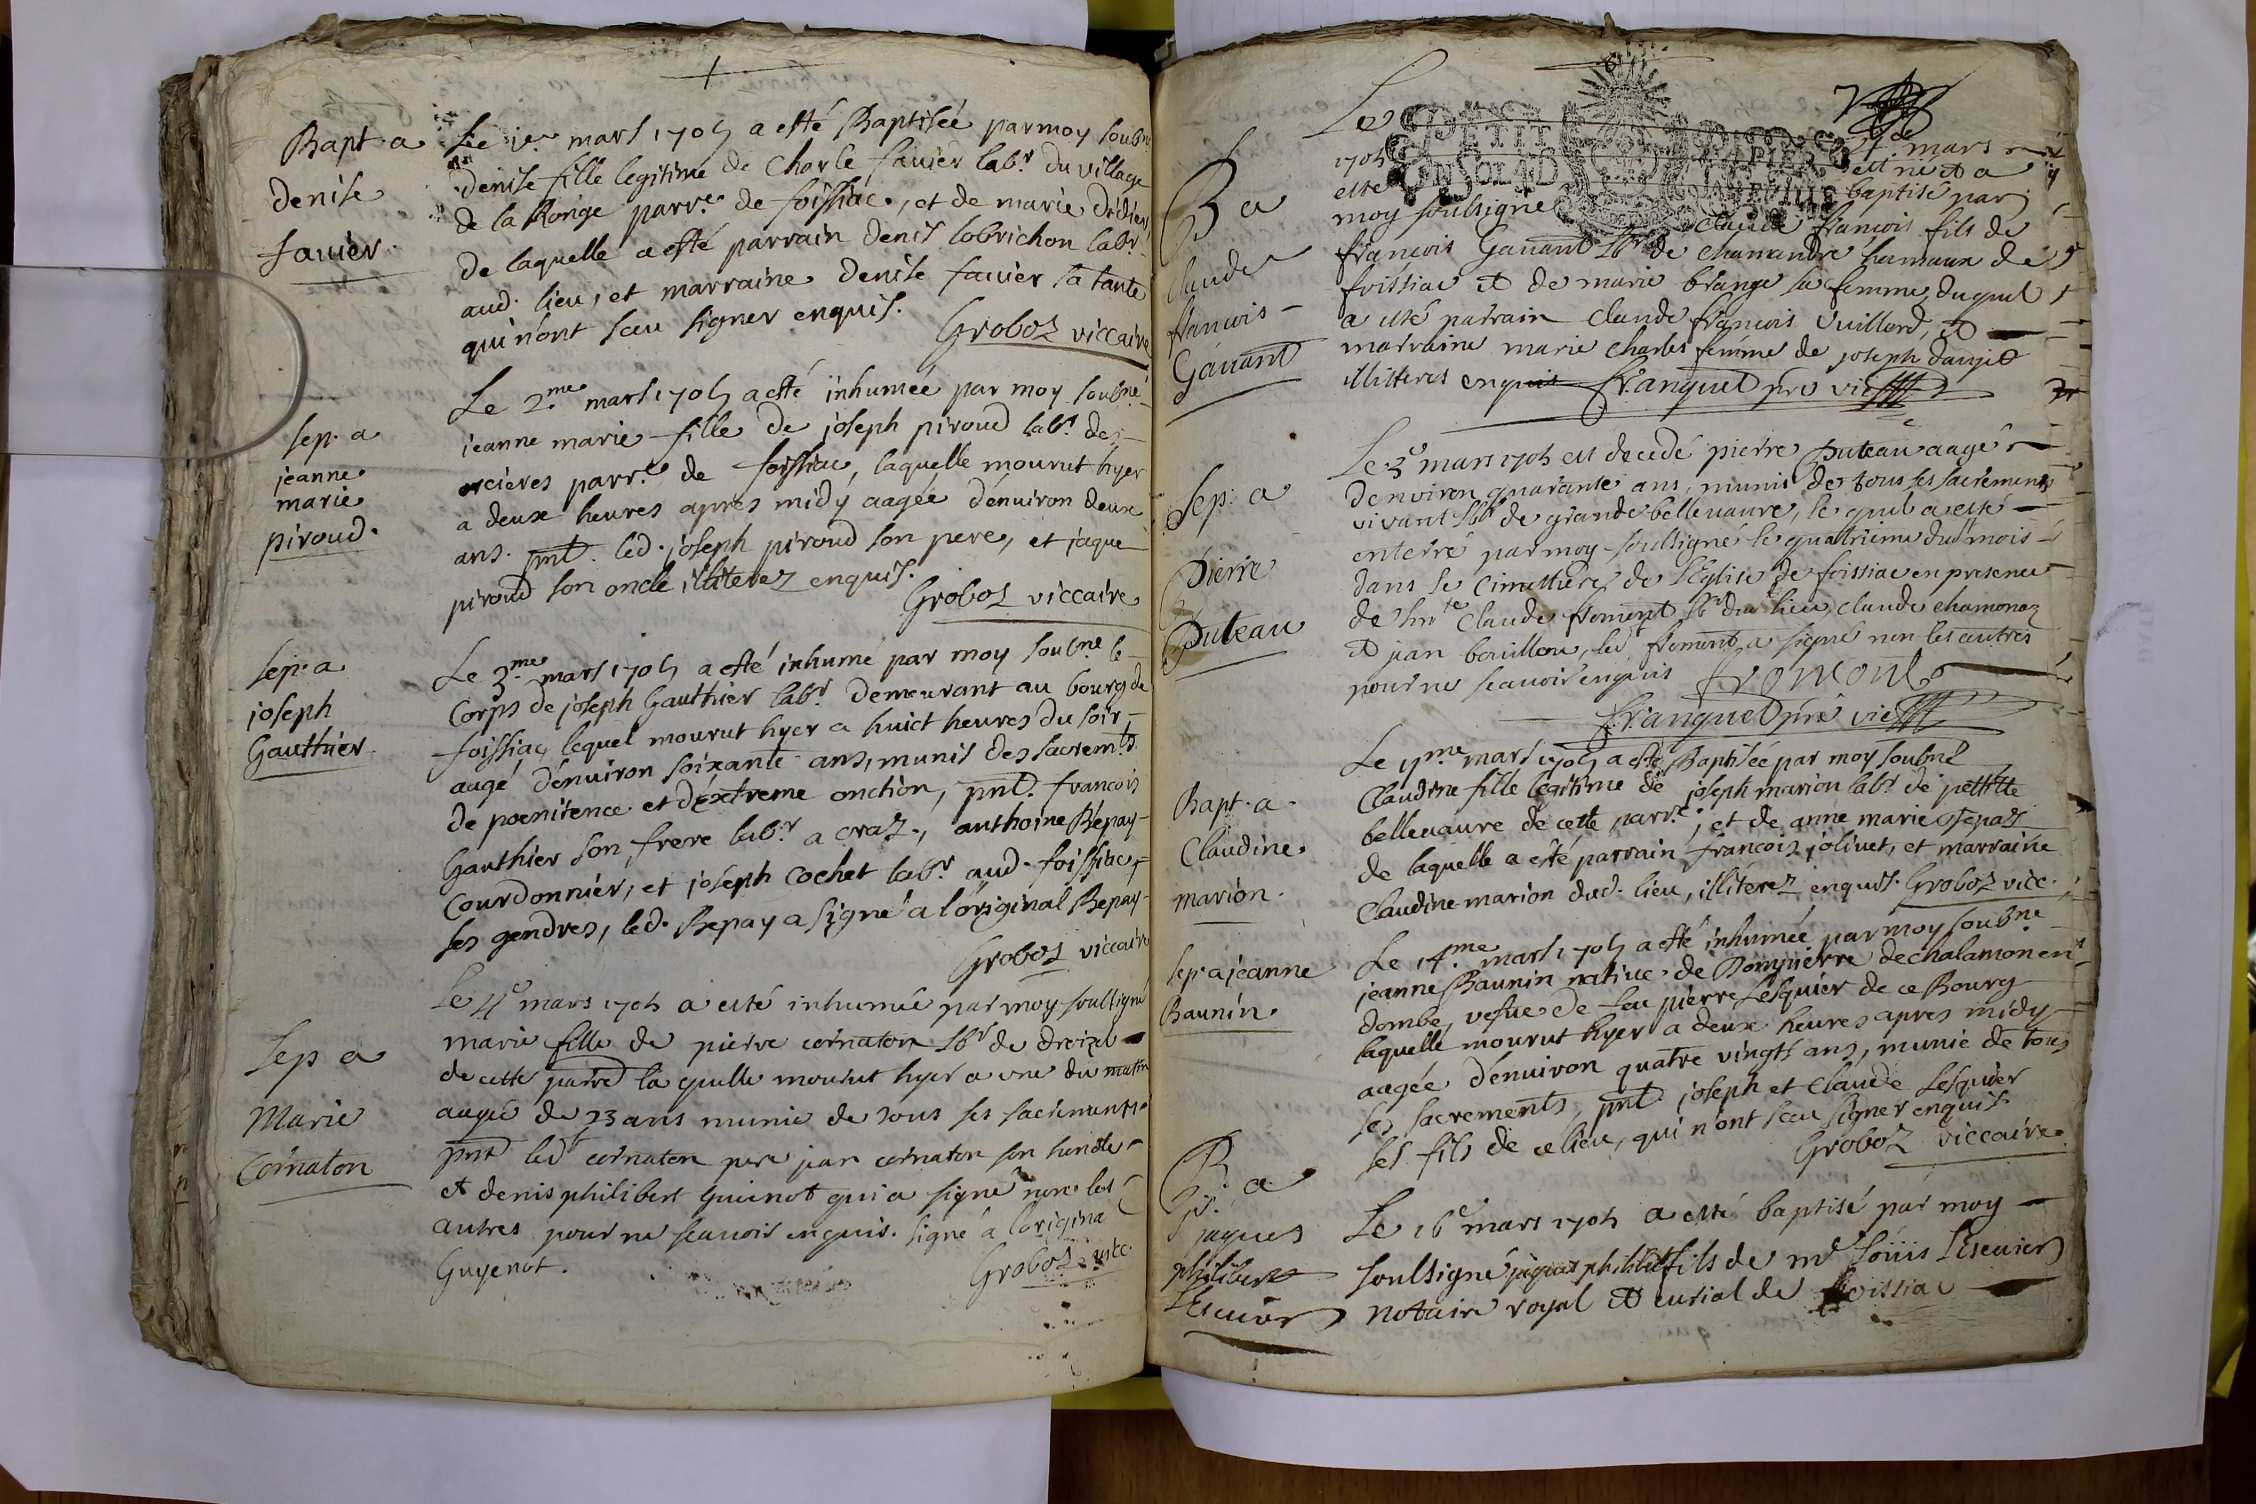 Bapt. a
denise
favier.
Le 1er mars 1705 a esté Baptisée par moy soubne
denise fille legitime de Charle favier labr. du village
de la Ronge parre. de foissiac, et de marie didier,
de laquelle a esté parrain denis lobrichon labr.
aud. lieu, et marraine denise favier sa tante
qui n'ont sceu signer enquis.
Groboz viccaire
Sep. a
jeanne
marie
piroud.
Le 2.me mars 1705 a esté inhumée par moy soubné
jeanne marie fille de joseph piroud labr. de
parre. de foissiac, laquelle mourut hyer
a deux heures apres midy aagée d'enuiron deux
ans. pnt. led. joseph piroud son pere, et jaque
piroud son oncle illiterez enquis.
Groboz viccaire
Sep. a
joseph
Gauthier.
Le 3.me mars 1705 a esté inhumé par moy soubne le
Corps de joseph Gauthier labr. demeurant au bourg de
foissiac, lequel mourut hyer a huict heures du soir,
aagé d'enuiron soixante ans, munis des sacremts.
de poenitence et d'extreme onction, pnt. francois
Gauthier son frere labr. a craz, anthoine Bepay
Courdonnier, et joseph Cochet labr. aud. foissiac,
ses gendres, led. Bepay a signé a l'original Bepay
Groboz viccaire
Sep a
Marie
Cornaton
Le 4e mars 1705 a esté inhumée par moy soussigné
marie fille de pierre cornaton lbr de droizel
de cette parre la quelle mourut hyer a une du matin
aagée de 23 ans munie de tous ses sacrements
pnt ledt cornaton pere jean cornaton son
et denis philibert guienot qui a signé non les
autres pour ne scauoir enquis. signé a lorigina
Guyenot.
Groboz vicc.
Le
PETIT PAPIER
7
1705 mars
esté est né et a
moy soussigné baptisé par
B a
Claude
francois
Gauant
Claude francois fils de
francois Gauant lbr de chamandre hameaux de
foissiac et de marie brange sa femme, duquel
a esté parrain Claude francois Vuillerd, et
marraine marie Charles femme de joseph
illitteres enquis franquet pre vic
Sep. a
Pierre
Puteau
Le 3e mars 1705 est decedé pierre Puteau aagé
denuiron quarante ans, munis de tous ses sacrements
vivant lbr de grande bellevauvre, le quel a esté
enterré par moy soussigné le quatrieme dud mois
dans le Cimettiere de l'Eglise de foissiac en presence
de Claude froment lbr dud lieu, claude chamonaz
et jean bouillou, led froment a signé non les autres
pour ne scauoir enquis fromont
franquet pre vic
Bapt. a.
Claudine
marion.
Le mars 1705 a esté Baptisée par moy soubne
Claudine fille legitime de joseph marion labr. de petitte
bellevauvre de cette parre., et de anne marie
de laquelle a esté parrain francois joliuet, et marraine
Claudine marion dud. lieu, illiterez enquis. Groboz vicc.
Sep. a jeanne
Baunin.
Le 14.me mars 1705 a esté inhumée par moy soubne
jeanne Baunin natiue de Dompierre de chalamon en
dombe, vefue de feu pierre Lesquier de ce Bourg
laquelle mourut hyer a deux heures apres midy
aagée d'enuiron quatre vingts ans, munie de tous
ses sacrements, pnt. joseph et Claude Lesquier
ses fils de ce lieu, qui n'ont sceu signer enquis.
Groboz viccaire.
B. a
jaques
philibert
Lescuier
Le 16e mars 1705 a esté baptisé par moy
soussigné jaques philibert fils de me Loüis Lescuier
notaire royal et curial de foissiac